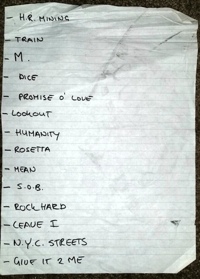 - H.R. MINING
- TRAIN
- M.
- DICE
- PROMISE O' LOVE
- LOOKOUT
- HUMANITY
- ROSETTA
- MEAN
- S.O.B.
- ROCK HARD
- LEAVE I
- N.Y.C. STREETS
- GIVE IT 2 ME